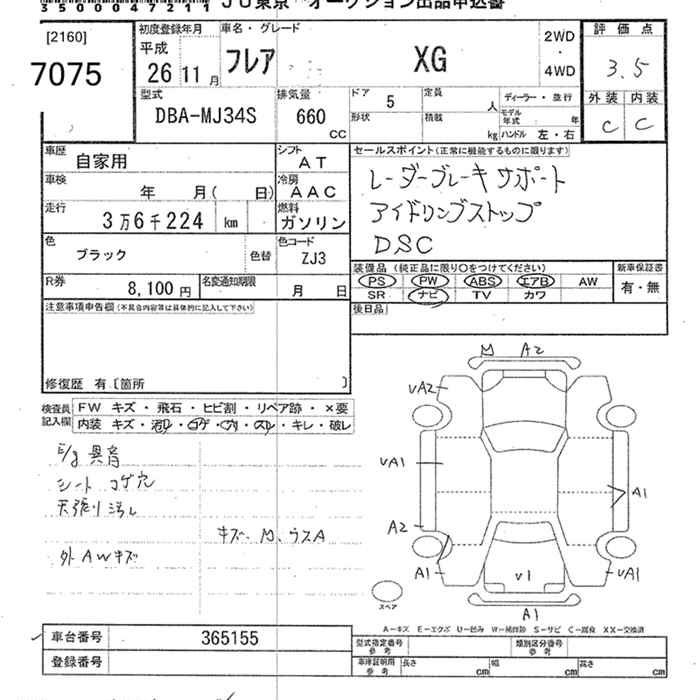 3 5 0 0 0 4 7 2 1 1
JU東京 オークション出品申込書
[2160]
7075
初度登録年月
平成
26 11 月
車名・グレード
フレア XG
2WD
・
4WD
評価点
3.5
外装 内装
C C
型式
DBA-MJ34S
排気量
660
CC
ドア 5
形状
定員 人
積載 kg
ディーラー・並行
モデル年式 年
ハンドル 左・右
車歴 自家用
シフト AT
車検 年 月( 日)
冷房 AAC
走行 3万6千224 km
燃料 ガソリン
色 ブラック 色替
色コード ZJ3
R券 8,100 円
名変通知期限 月 日
セールスポイント(正常に機能するものに限ります)
レーダーブレーキサポート
アイドリングストップ
DSC
装備品 (純正品に限り○をつけてください)
新車保証書
PS PW ABS エアB AW
有・無
SR ナビ TV カワ
後日品
注意事項申告欄(不具合内容等は具体的に記入して下さい)
修復歴 有〔箇所 〕
検査員記入欄
FW キズ・飛石・ヒビ割・リペア跡・×要
内装 キズ・汚レ・コゲ・穴・スレ・キレ・破レ
E/g 異音
シート コゲ穴
天張り 汚レ
キズ、M、ウスA
外 AWキズ
M A2
UA2
UA1
A1
A2
A1
UA1
U1
A1
スペア
A−キズ E−エクボ U−凹み W−補修跡 S−サビ C−腐食 XX−交換済
車台番号 365155
登録番号
型式指定番号 参考
類別区分番号 参考
車庫証明用 参考
長さ cm
幅 cm
高さ cm